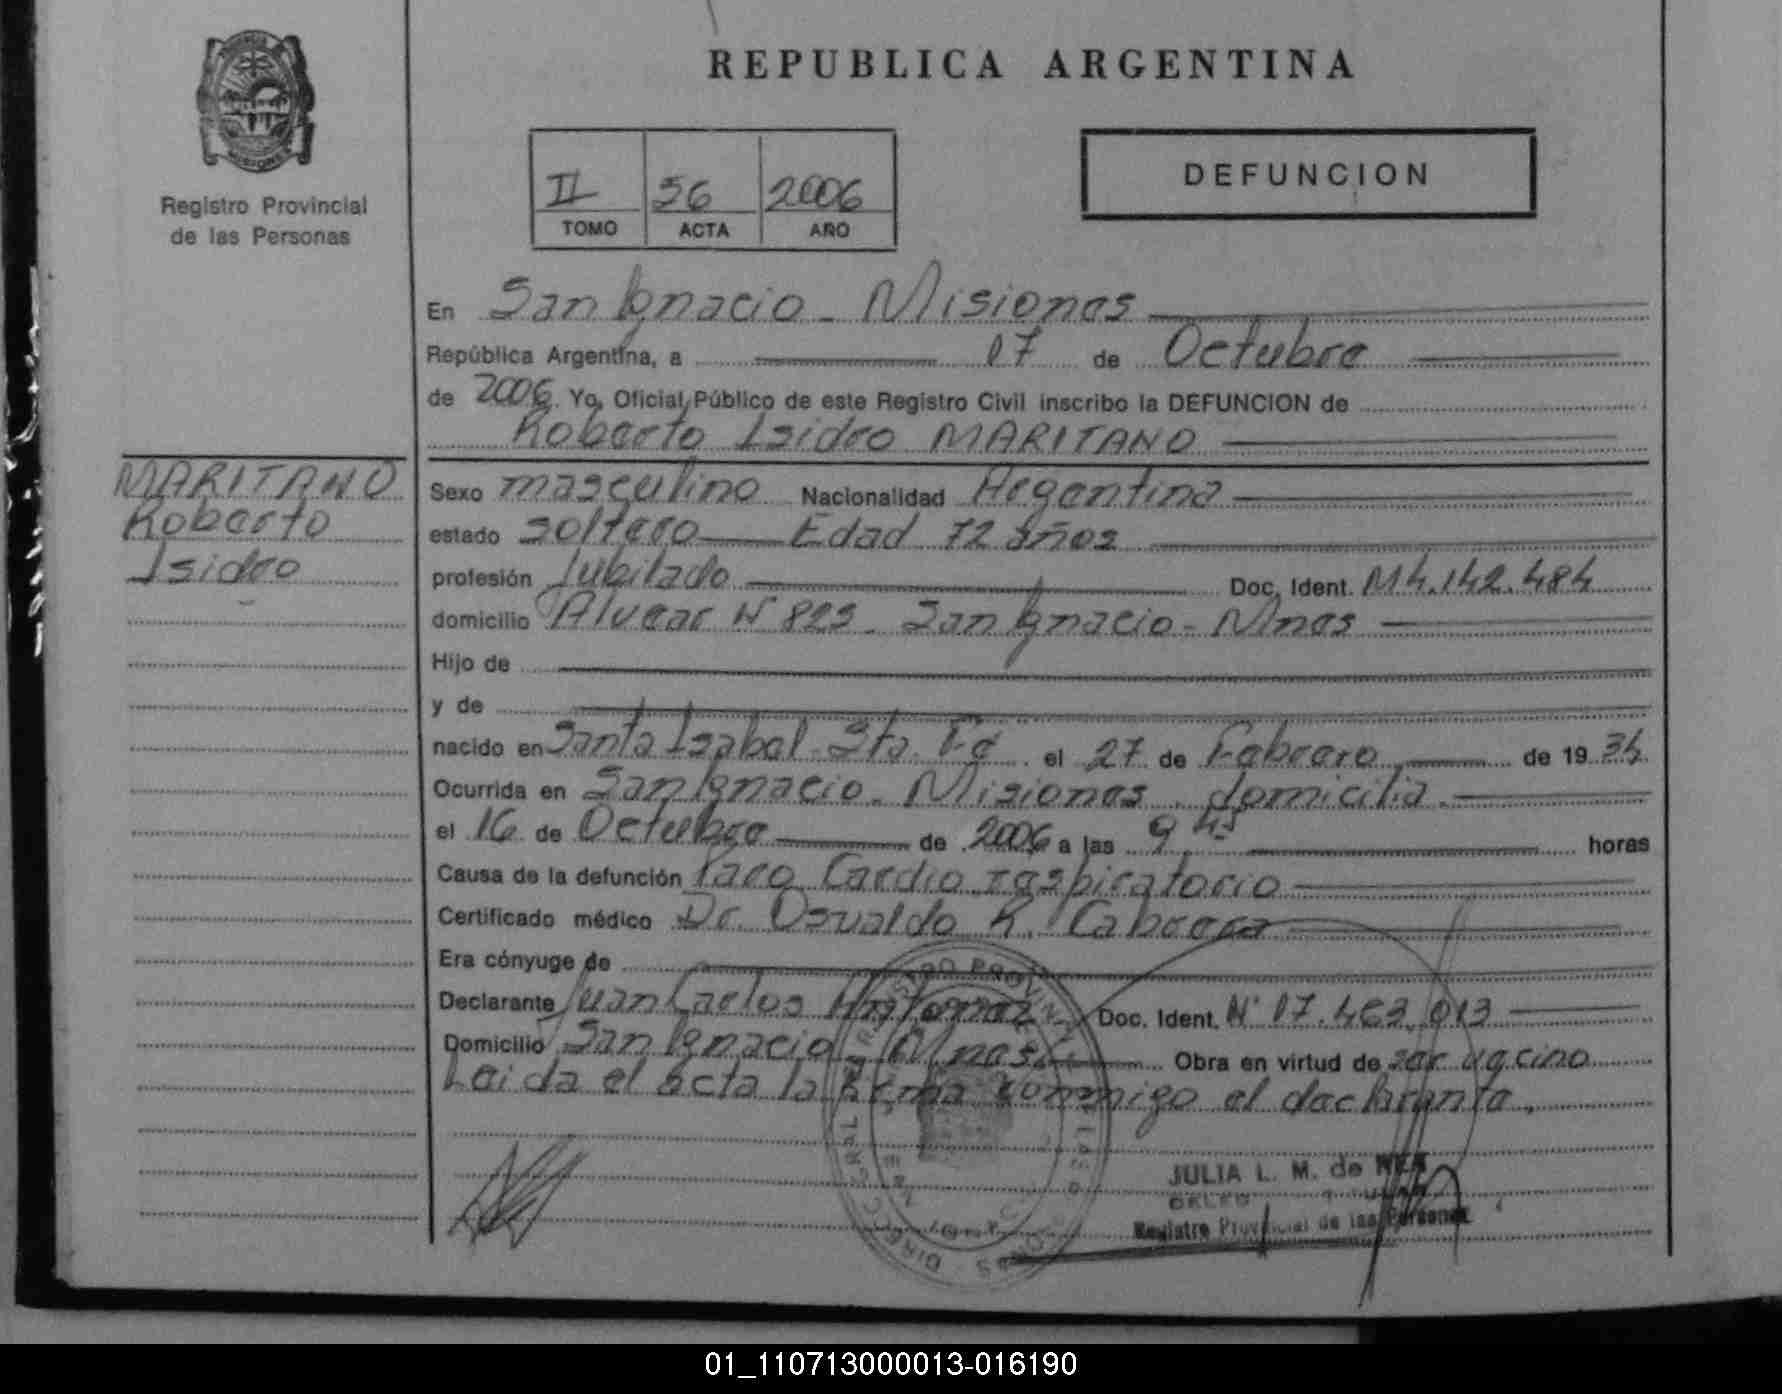 REPUBLICA ARGENTINA
Registro Provincial
de las Personas
II 56 2006
TOMO ACTA AÑO
DEFUNCION
En San Ignacio - Misiones
República Argentina, a 17 de Octubre
de 2006. Yo, Oficial Público de este Registro Civil inscribo la DEFUNCION de
Roberto Isidro MARITANO
MARITANO
Roberto
Isidro
Sexo masculino Nacionalidad Argentina
estado soltero Edad 72 años
profesión Jubilado Doc. Ident. M 4.142.484
domicilio Alvear Nº 823 - San Ignacio - Mnes
Hijo de
y de
nacido en Santa Isabel - Sta. Fé el 27 de Febrero de 1934
Ocurrida en San Ignacio - Misiones, domicilio.
el 16 de Octubre de 2006 a las 9,45 horas
Causa de la defunción Paro Cardio respiratorio
Certificado médico Dr. Osvaldo R. Cabrera
Era cónyuge de
Declarante Juan Carlos Doc. Ident. Nº 17.463.013
Domicilio San Ignacio Mnes. Obra en virtud de ser vecino
Leida el acta la firma conmigo el declarante.
JULIA L. M. de
Registro Provincial de las Personas
01_110713000013-016190